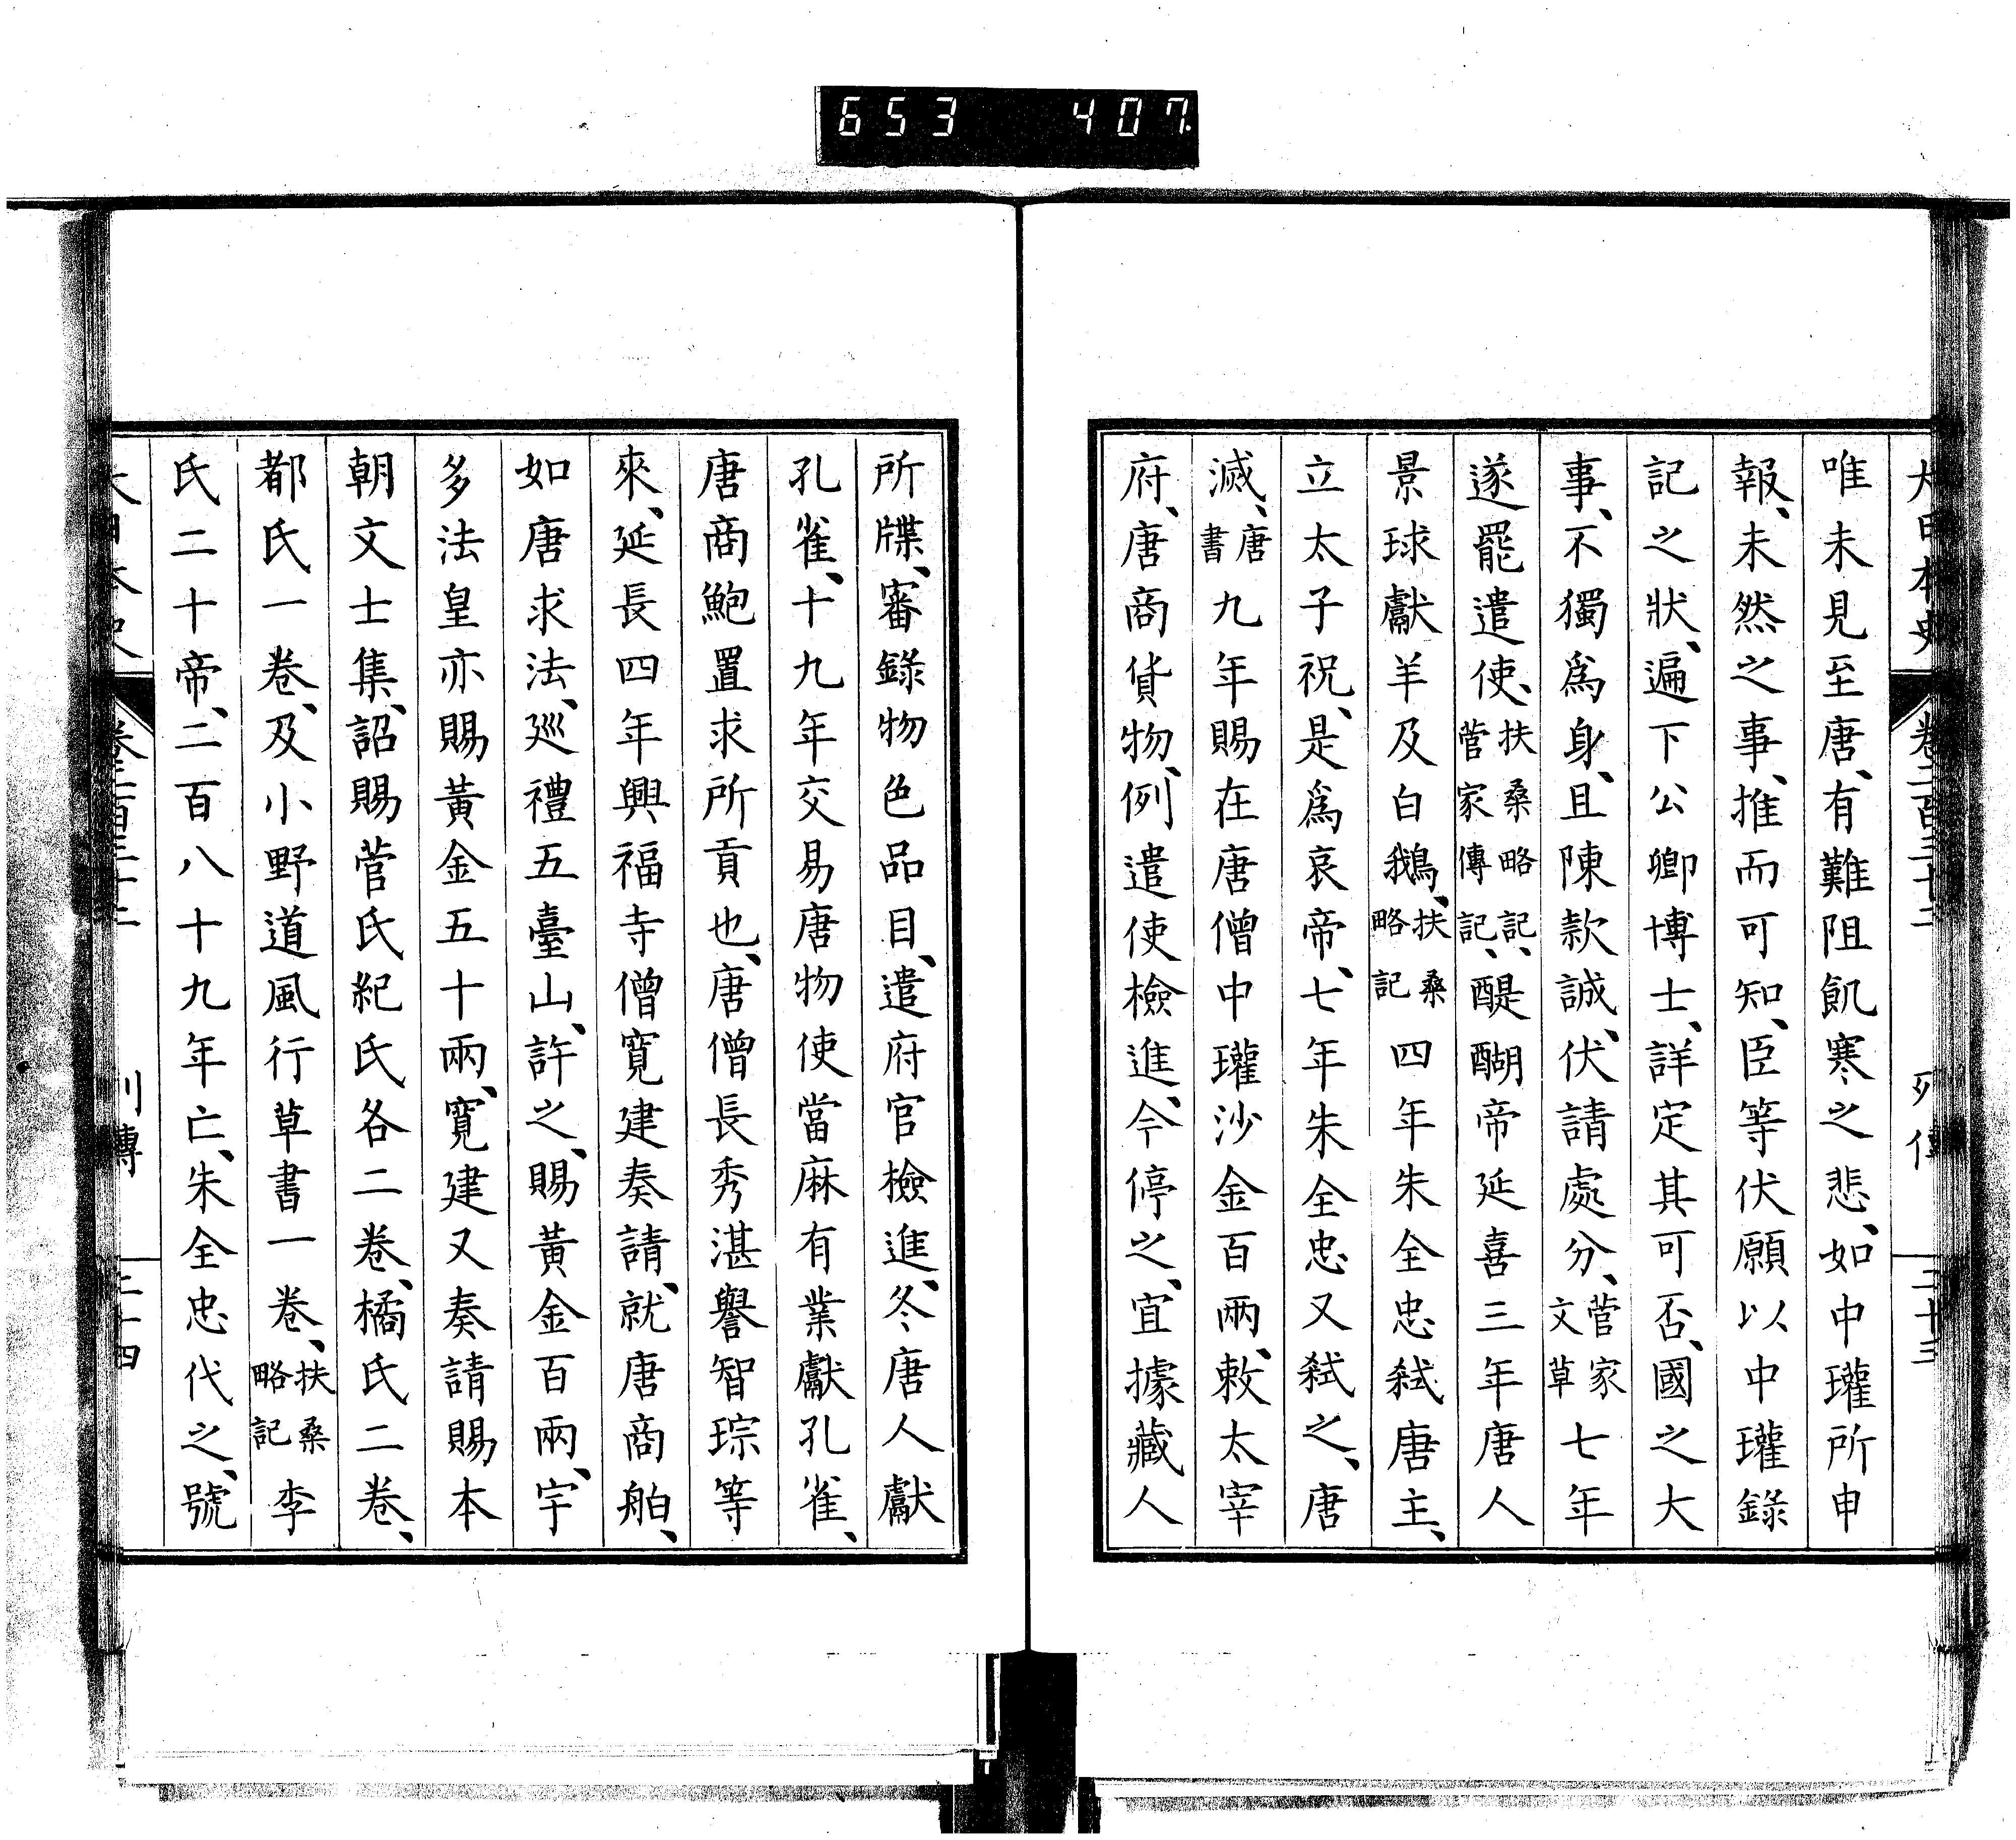 653 407.
大日本史 卷二百四十二 列傳 三十三
唯未見至唐、有難阻飢寒之悲、如中瓘所申
報、未然之事、推而可知、臣等伏願以中瓘錄
記之狀、遍下公卿博士、詳定其可否、國之大
事、不獨爲身、且陳款誠、伏請處分、菅家文草七年
遂罷遣使、扶桑略記、菅家傳記、醍醐帝延喜三年唐人
景球獻羊及白鵝、扶桑略記四年朱全忠弑唐主、
立太子祝、是爲哀帝、七年朱全忠又弑之、唐
滅、唐書九年賜在唐僧中瓘沙金百兩、敕太宰
府、唐商貨物、例遣使檢進、今停之、宜據藏人
所牒、審錄物色品目、遣府官檢進、冬唐人獻
孔雀、十九年交易唐物使當麻有業獻孔雀、
唐商鮑置求所貢也、唐僧長秀湛譽智琮等
來、延長四年興福寺僧寬建奏請、就唐商舶、
如唐求法、巡禮五臺山、許之、賜黃金百兩、宇
多法皇亦賜黃金五十兩、寬建又奏請賜本
朝文士集、詔賜菅氏紀氏各二卷、橘氏二卷、
都氏一卷、及小野道風行草書一卷、扶桑略記李
氏二十帝、二百八十九年亡、朱全忠代之、號
大日本史 列傳 三十四